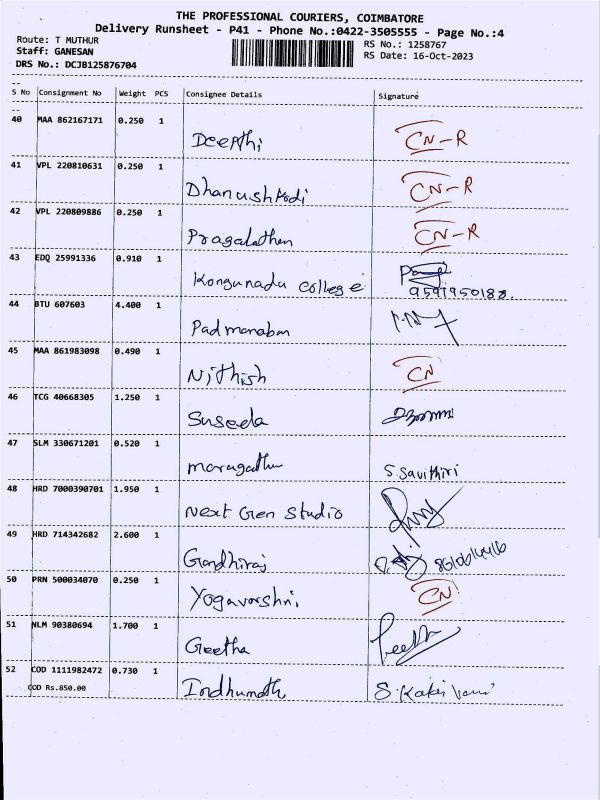 THE PROFESSIONAL COURIERS, COIMBATORE
Delivery Runsheet - P41 - Phone No.:0422-3505555 - Page No.:4
Route: T MUTHUR
RS No.: 1258767
Staff: GANESAN
RS Date: 16-Oct-2023
DRS No.: DCJB125876704
S No Consignment No Weight PCS Consignee Details Signature
40 MAA 862167171 0.250 1
Deepthi CN-R
41 VPL 220810631 0.250 1
Dhanushkodi CN-R
42 VPL 220809886 0.250 1
Pragalathan CN-R
43 EDQ 25991336 0.910 1
Kongunadu college
44 BTU 607603 4.400 1
Padmanaban
45 MAA 861983098 0.490 1
Nithish CN
46 TCG 40668305 1.250 1
Suseela
47 SLM 330671201 0.520 1
maragatham S. Savithiri
48 HRD 7000390701 1.950 1
Next Gen Studio
49 HRD 714342682 2.600 1
Gandhiraj
50 PRN 500034070 0.250 1
Yogavarshni CN
51 NLM 90380694 1.700 1
Geetha
52 COD 1111982472 0.730 1
COD Rs.850.00 Indhumathi